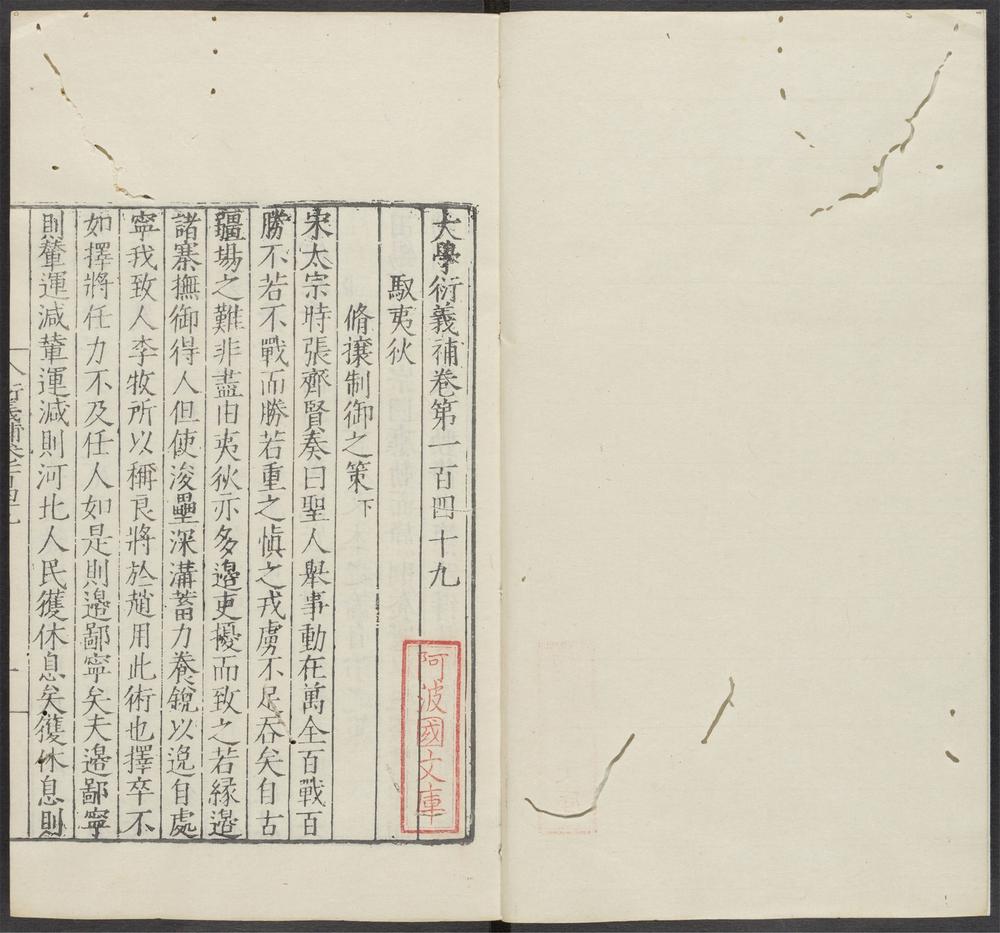 大學衍義補卷第一百四十九
馭夷狄
脩攘制御之策下
宋太宗時張齊賢奏曰聖人舉事動在萬全百戰百
勝不若不戰而勝若重之慎之戎虜不足吞矣自古
疆場之難非盡由夷狄亦多邊吏擾而致之若緣邊
諸寨撫御得人但使浚壘深溝蓄力養銳以逸自處
寧我致人李牧所以稱良將於趙用此術也擇卒不
如擇將任力不及任人如是則邊鄙寧矣夫邊鄙寧
則輦運減輦運減則河北人民獲休息矣獲休息則
阿波國文庫